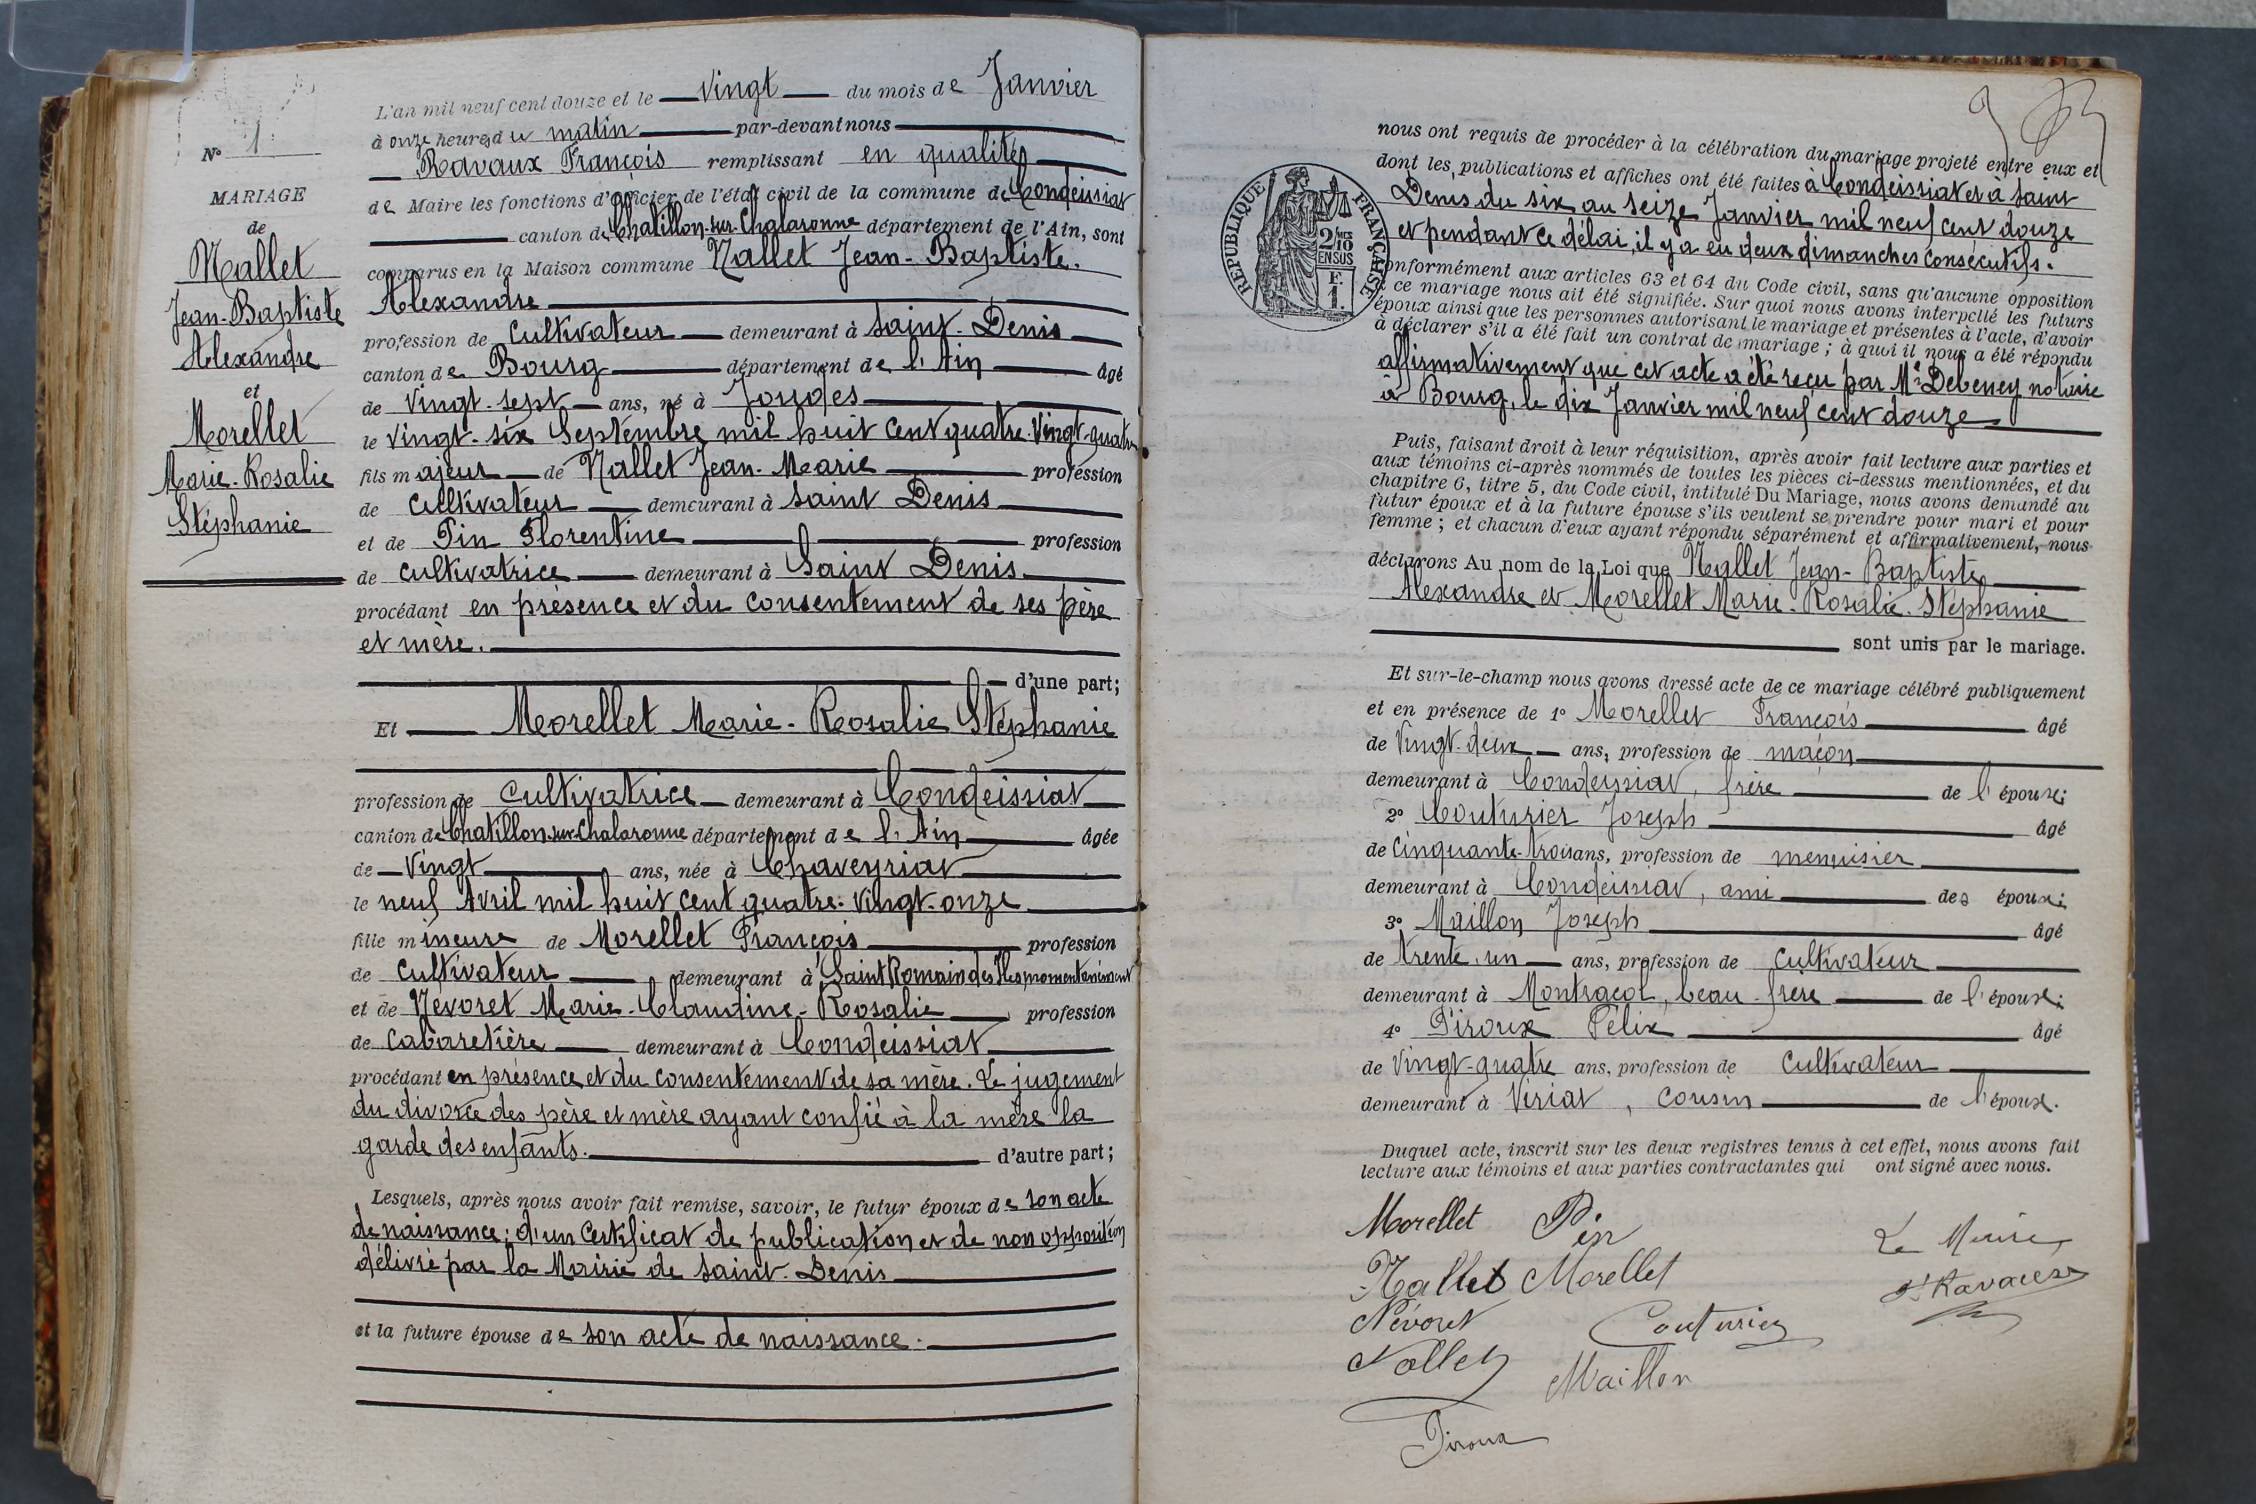 L'an mil neuf cent douze et le vingt du mois de Janvier
à onze heures du matin par-devant nous
Ravaux François remplissant en qualité
de Maire les fonctions d'officier de l'état civil de la commune de Condeissiat
canton de Chatillon-sur-Chalaronne département de l'Ain, sont
comparus en la Maison commune Nallet Jean-Baptiste.
Alexandre
profession de Cultivateur demeurant à Saint-Denis
canton de Bourg département de l'Ain âgé
de vingt-sept ans, né à Joudes
le vingt-six Septembre mil huit cent quatre-vingt-quatre
fils majeur de Nallet Jean-Marie profession
de Cultivateur demeurant à Saint Denis
et de Pin Florentine profession
de cultivatrice demeurant à Saint Denis
procédant en présence et du consentement de ses père
et mère.
d'une part;
Et Morellet Marie-Rosalie Stéphanie
profession de Cultivatrice demeurant à Condeissiat
canton de Chatillon-sur-Chalaronne département de l'Ain âgée
de vingt ans, née à Chaveyriat
le neuf Avril mil huit cent quatre-vingt-onze
fille mineure de Morellet François profession
de Cultivateur demeurant à Saint Romain des Iles, momentanément
et de Nevoret Marie-Claudine-Rosalie profession
de Cabaretière demeurant à Condeissiat
procédant en présence et du consentement de sa mère. Le jugement
du divorce des père et mère ayant confié à la mère la
garde des enfants. d'autre part;
Lesquels, après nous avoir fait remise, savoir, le futur époux de son acte
de naissance; d'un certificat de publication et de non opposition
délivré par la Mairie de Saint-Denis
et la future épouse de son acte de naissance.
N° 1
MARIAGE
de
Nallet
Jean-Baptiste
Alexandre
et
Morellet
Marie-Rosalie
Stéphanie
nous ont requis de procéder à la célébration du mariage projeté entre eux et
dont les publications et affiches ont été faites à Condeissiat et à Saint
Denis du six au seize Janvier mil neuf cent douze
et pendant ce délai, il y a eu deux dimanches consécutifs.
conformément aux articles 63 et 64 du Code civil, sans qu'aucune opposition
à ce mariage nous ait été signifiée. Sur quoi nous avons interpellé les futurs
époux ainsi que les personnes autorisant le mariage et présentes à l'acte, d'avoir
à déclarer s'il a été fait un contrat de mariage; à quoi il nous a été répondu
affirmativement que cet acte a été reçu par Me Debeney notaire
à Bourg, le dix Janvier mil neuf cent douze
Puis, faisant droit à leur réquisition, après avoir fait lecture aux parties et
aux témoins ci-après nommés de toutes les pièces ci-dessus mentionnées, et du
chapitre 6, titre 5, du Code civil, intitulé Du Mariage, nous avons demandé au
futur époux et à la future épouse s'ils veulent se prendre pour mari et pour
femme; et chacun d'eux ayant répondu séparément et affirmativement, nous
déclarons Au nom de la Loi que Nallet Jean-Baptiste
Alexandre et Morellet Marie-Rosalie-Stéphanie
sont unis par le mariage.
Et sur-le-champ nous avons dressé acte de ce mariage célébré publiquement
et en présence de 1° Morellet François âgé
de vingt-deux ans, profession de maçon
demeurant à Condeyssiat, frère de l'épouse;
2° Couturier Joseph âgé
de Cinquante-trois ans, profession de menuisier
demeurant à Condeissiat, ami des époux;
3° Maillon Joseph âgé
de trente-un ans, profession de Cultivateur
demeurant à Montracol, beau-frère de l'épouse;
4° Piroux Félix âgé
de vingt-quatre ans, profession de Cultivateur
demeurant à Viriat, cousin de l'époux.
Duquel acte, inscrit sur les deux registres tenus à cet effet, nous avons fait
lecture aux témoins et aux parties contractantes qui ont signé avec nous.
Morellet Pin
Nallet Morellet
Le Maire
Névoret Couturier
F Ravaux
Nallet Maillon
Piroux
REPUBLIQUE FRANÇAISE
2/10
EN SUS
F.
1.